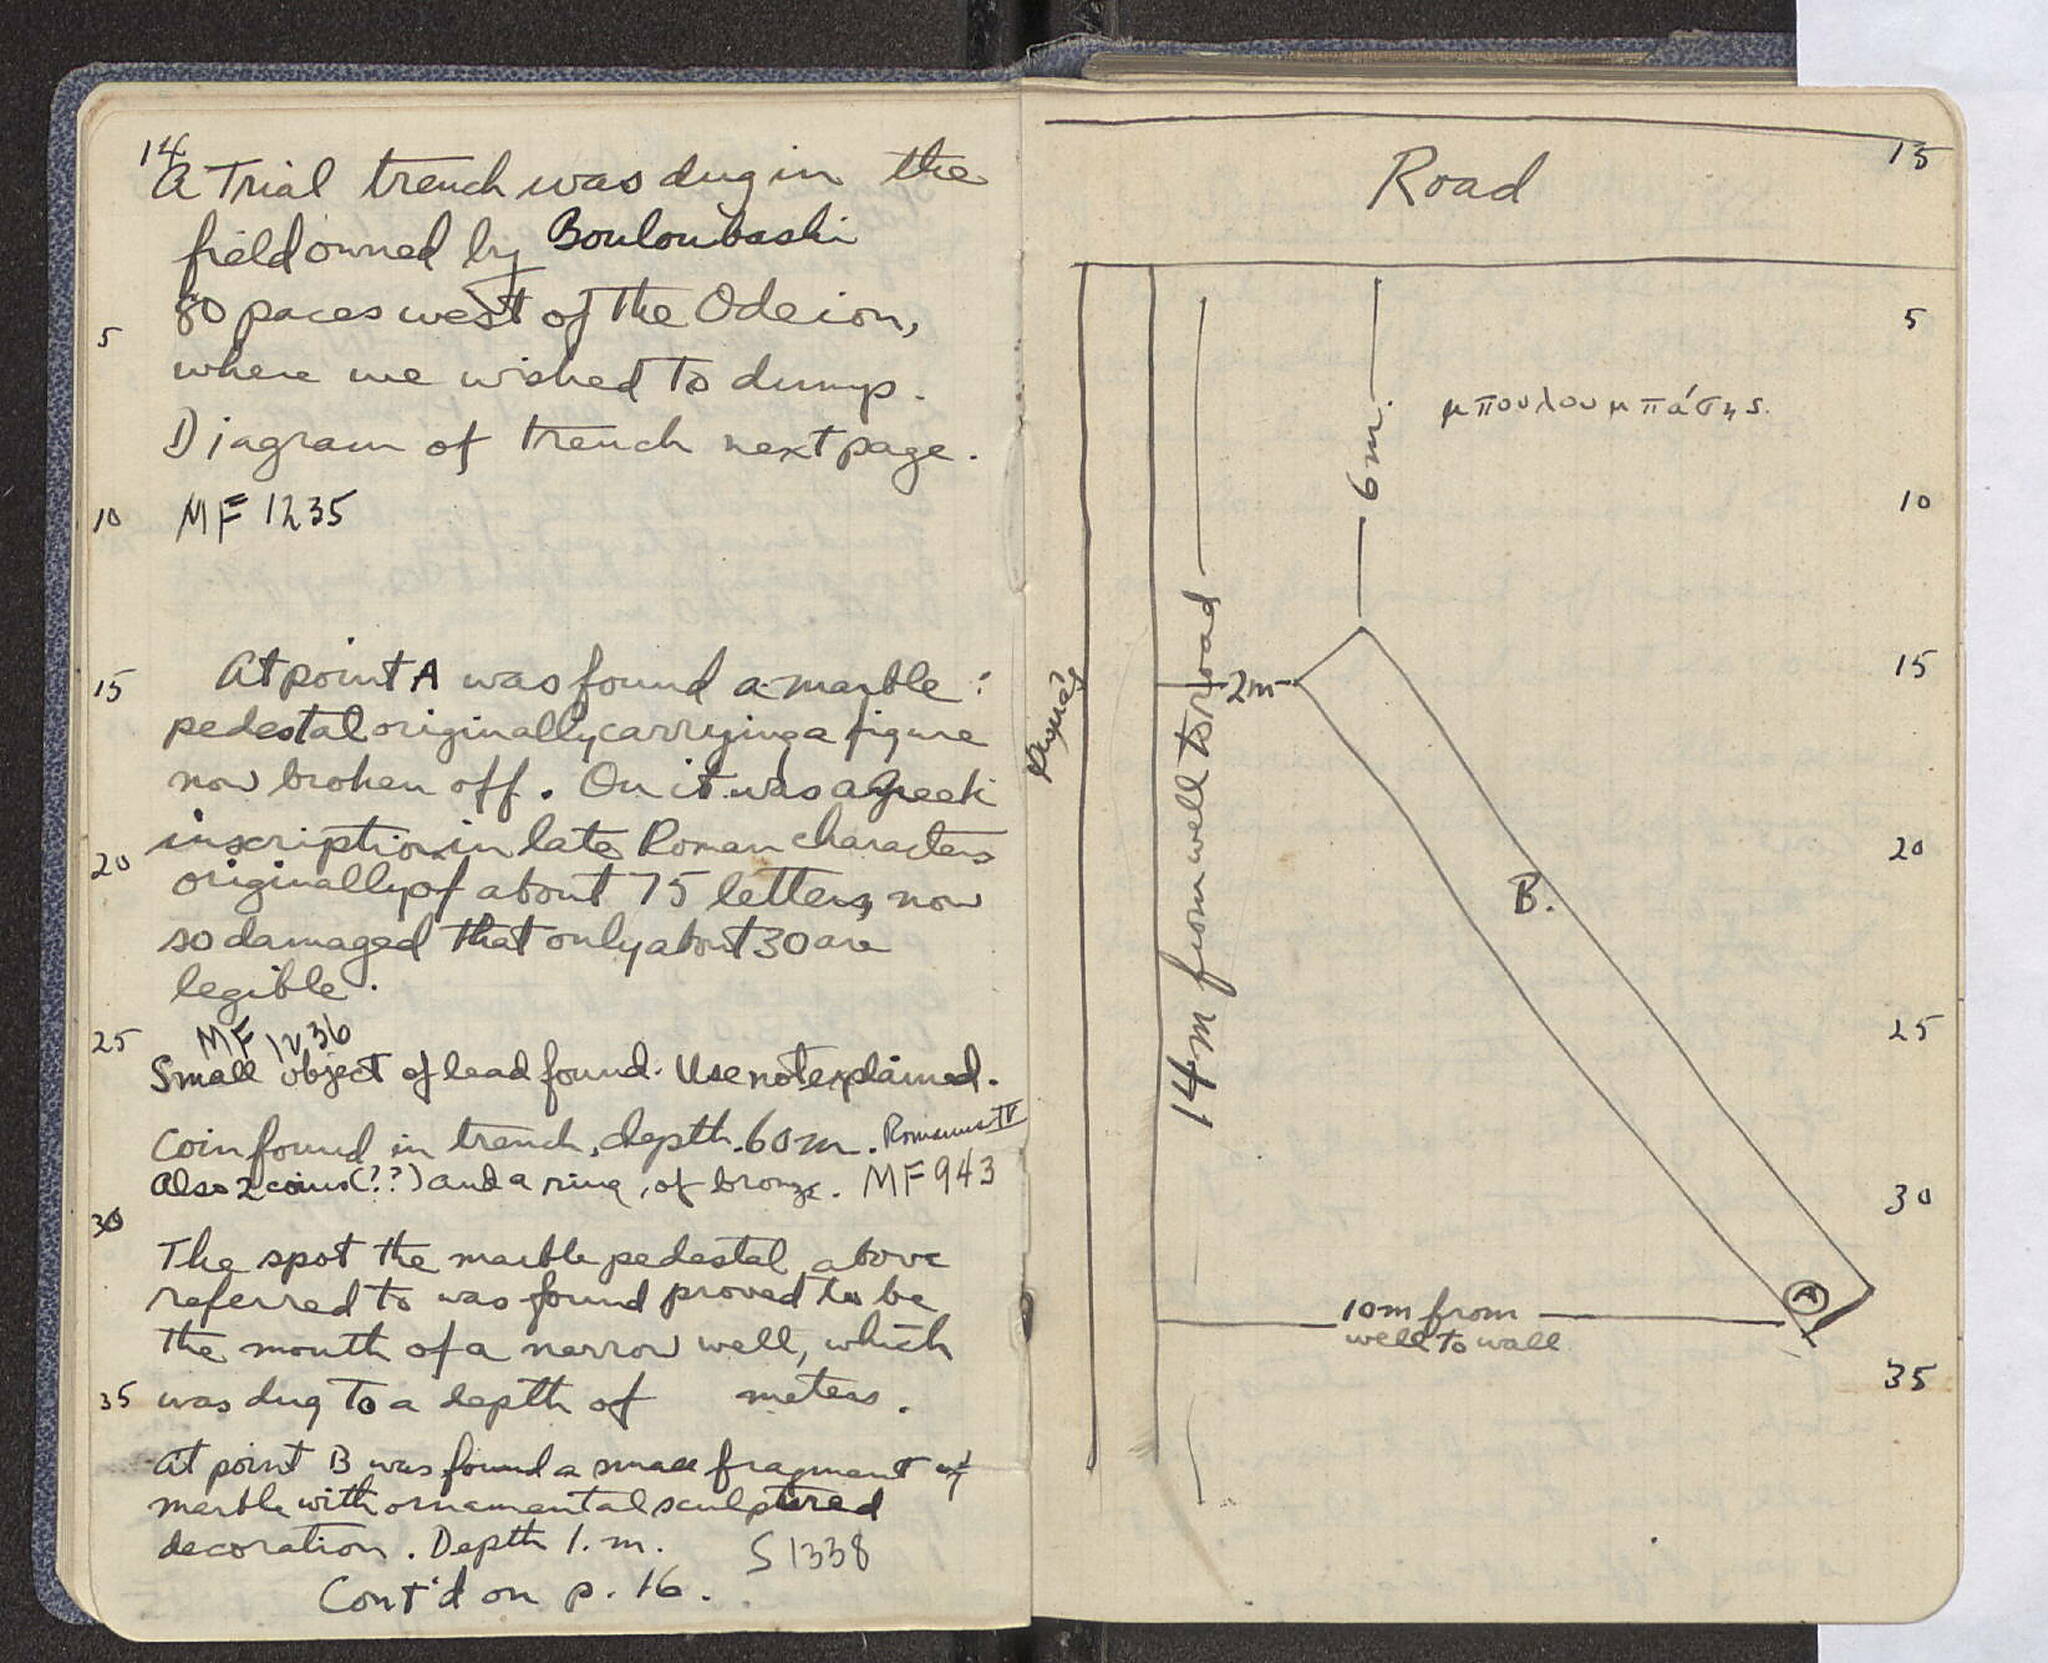 14
A Trial trench was dug in the
field owned by Bouloubashi
80 paces west of the Odeion,
5
where we wished to dump.
Diagram of trench next page.
10 MF 1235
15 At point A was found a marble
pedestal originally carrying a figure
now broken off. On it was a Greek
inscription in late Roman characters
20
originally of about 75 letters, now
so damaged that only about 30 are
legible.
25 MF 1236
Small object of lead found. Use not explained.
Coin found in trench, depth .60 m. Romanus IV
Also 2 coins (??) and a ring, of bronze. MF 943
30
The spot the marble pedestal above
referred to was found proved to be
the mouth of a narrow well, which
35 was dug to a depth of meters.
At point B was found a small fragment of
marble with ornamental sculptured
decoration. Depth 1. m. S 1338
Cont'd on p. 16.
15
Road
5
μπουλουμπάσης.
6 m.
10
15
2m
14 m from well to road
20
B.
25
30
A
10 m from
well to wall
35